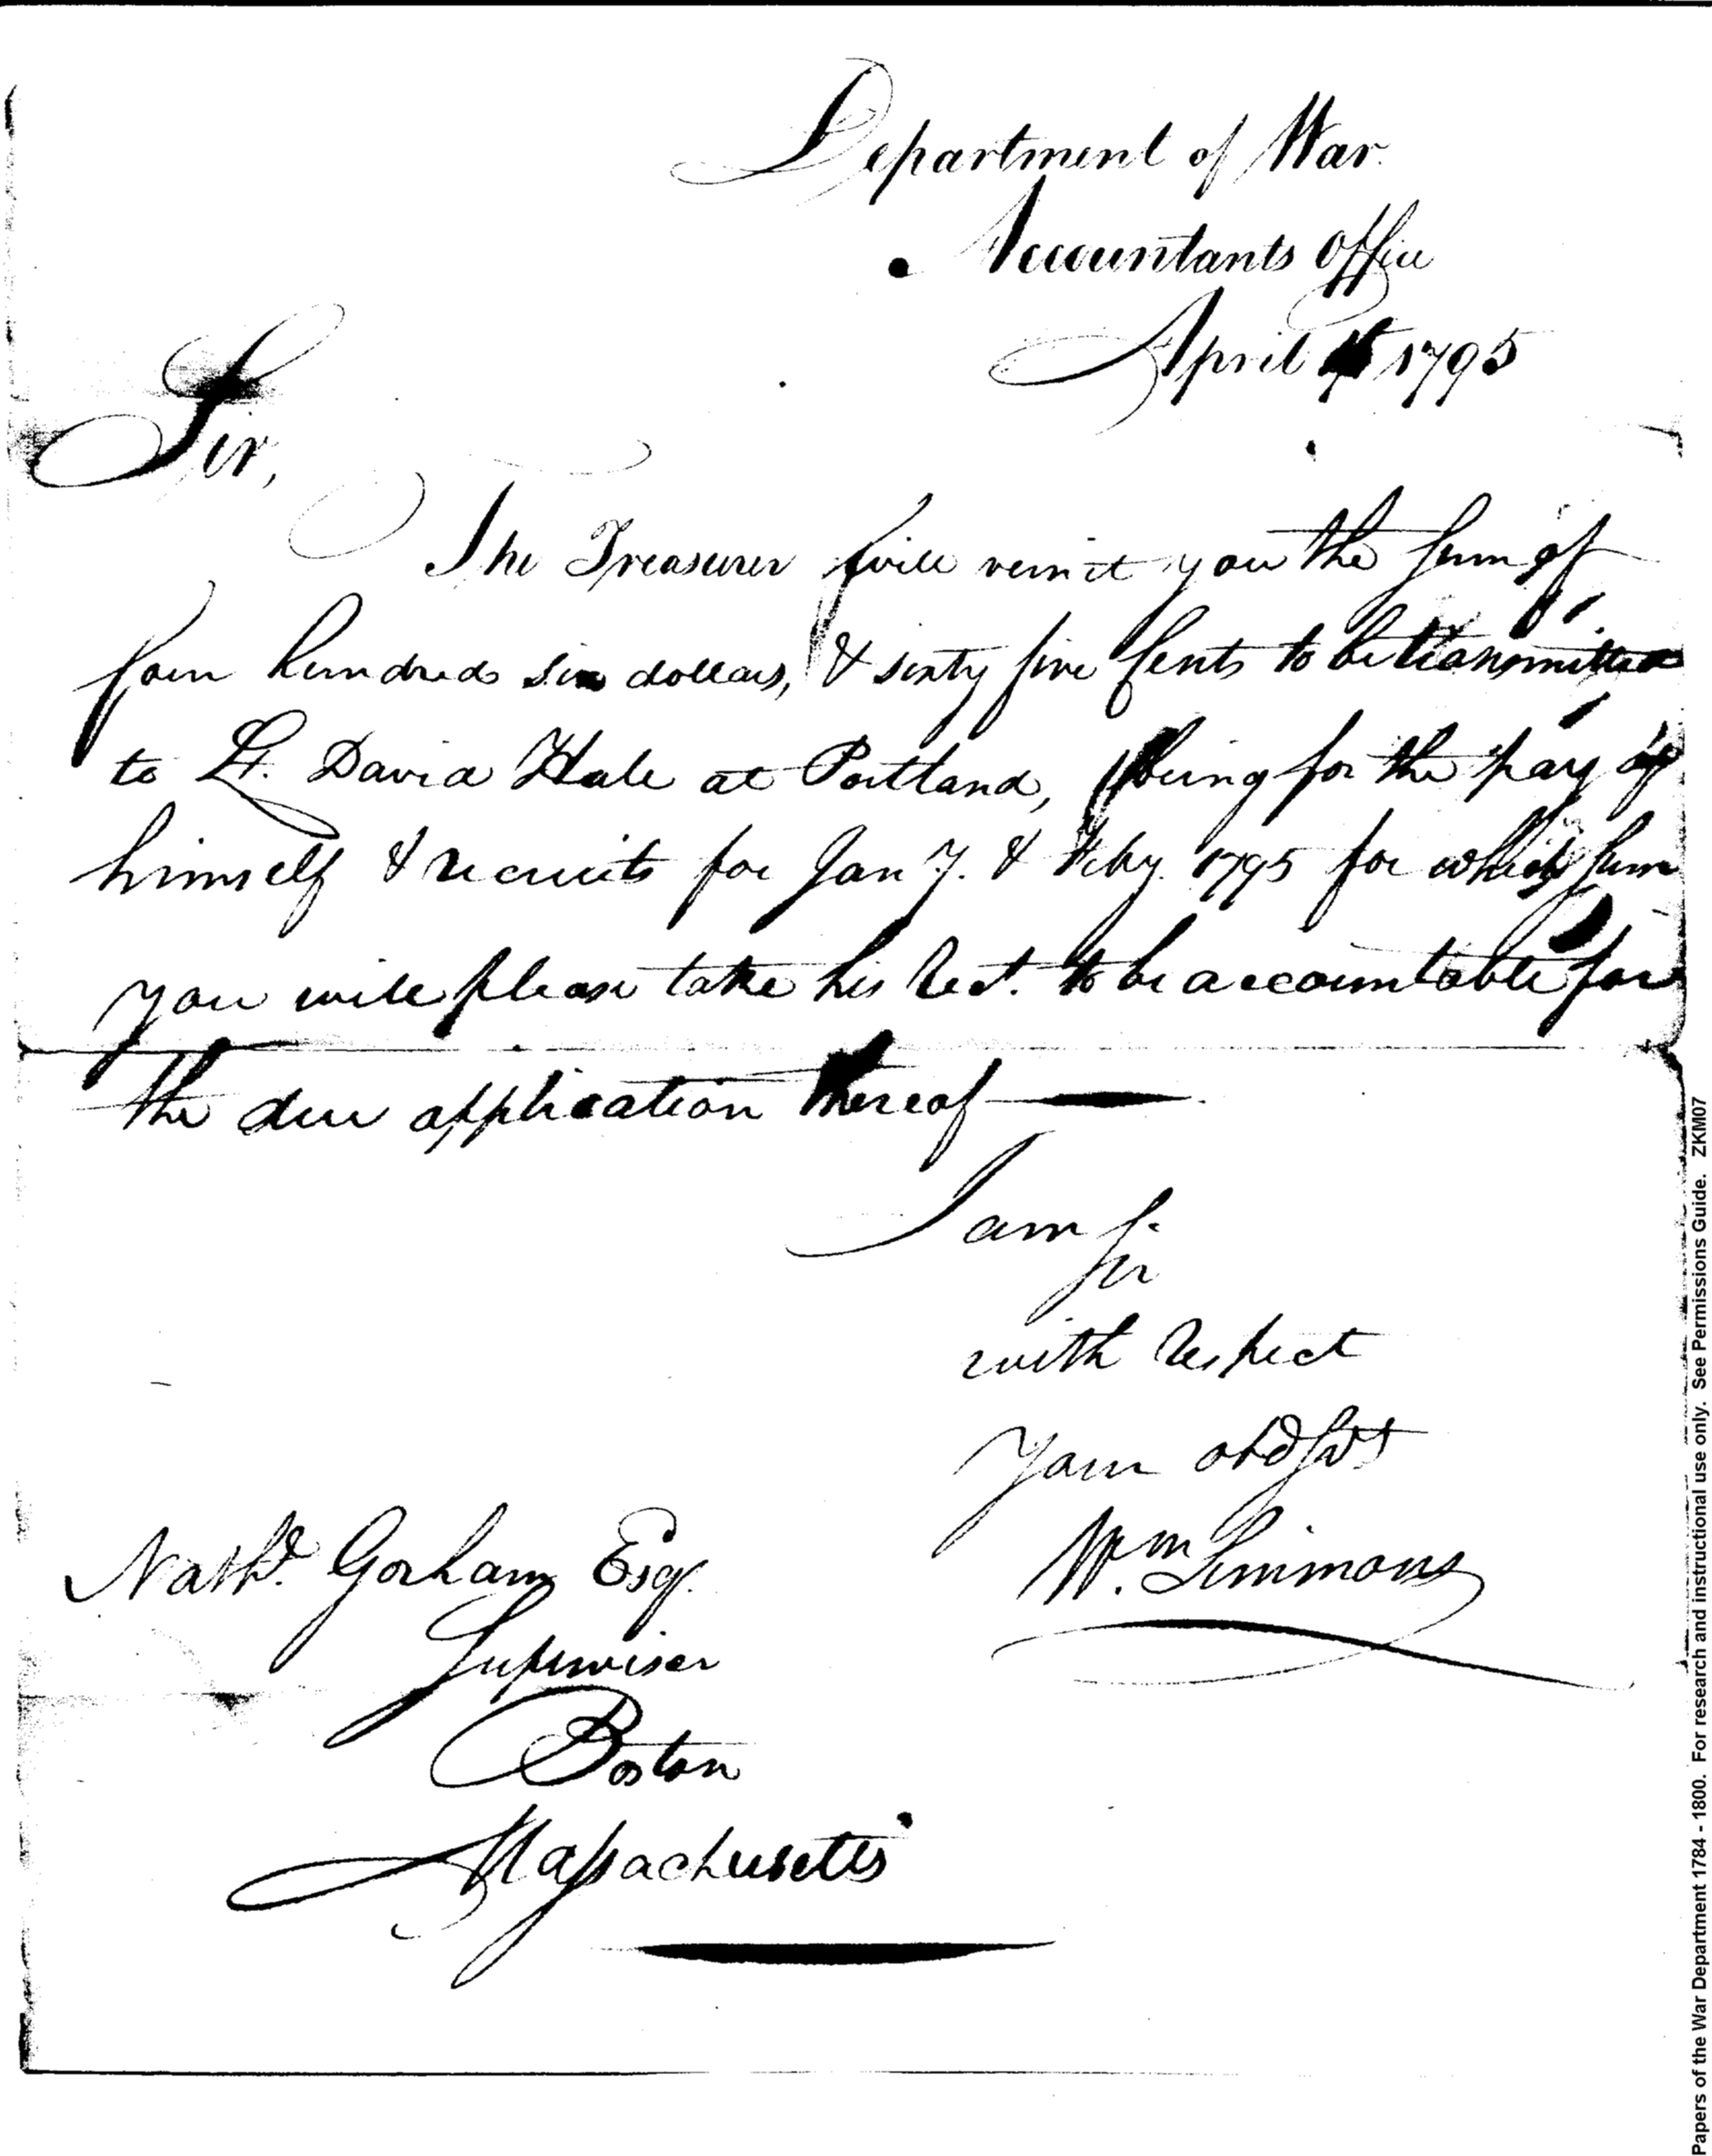 Department of War.
Accountants Office
April 1795
Sir,
The Treasurer will remit you the sum of
four hundred six dollars, & sixty five Cents to be transmitted
to Lt. David Hale at Portland, being for the pay of
himself & recruits for Jany. & Feby. 1795 for which sum
you will please take his Rect. to be accountable for
the due application thereof
I am
Sir
with Respect
Your obd Svt
Wm. Simmons
Nathl. Gorham Esqr.
Superviser
Boston
Massachusetts
Papers of the War Department 1784 - 1800. For research and instructional use only. See Permissions Guide. ZKM07